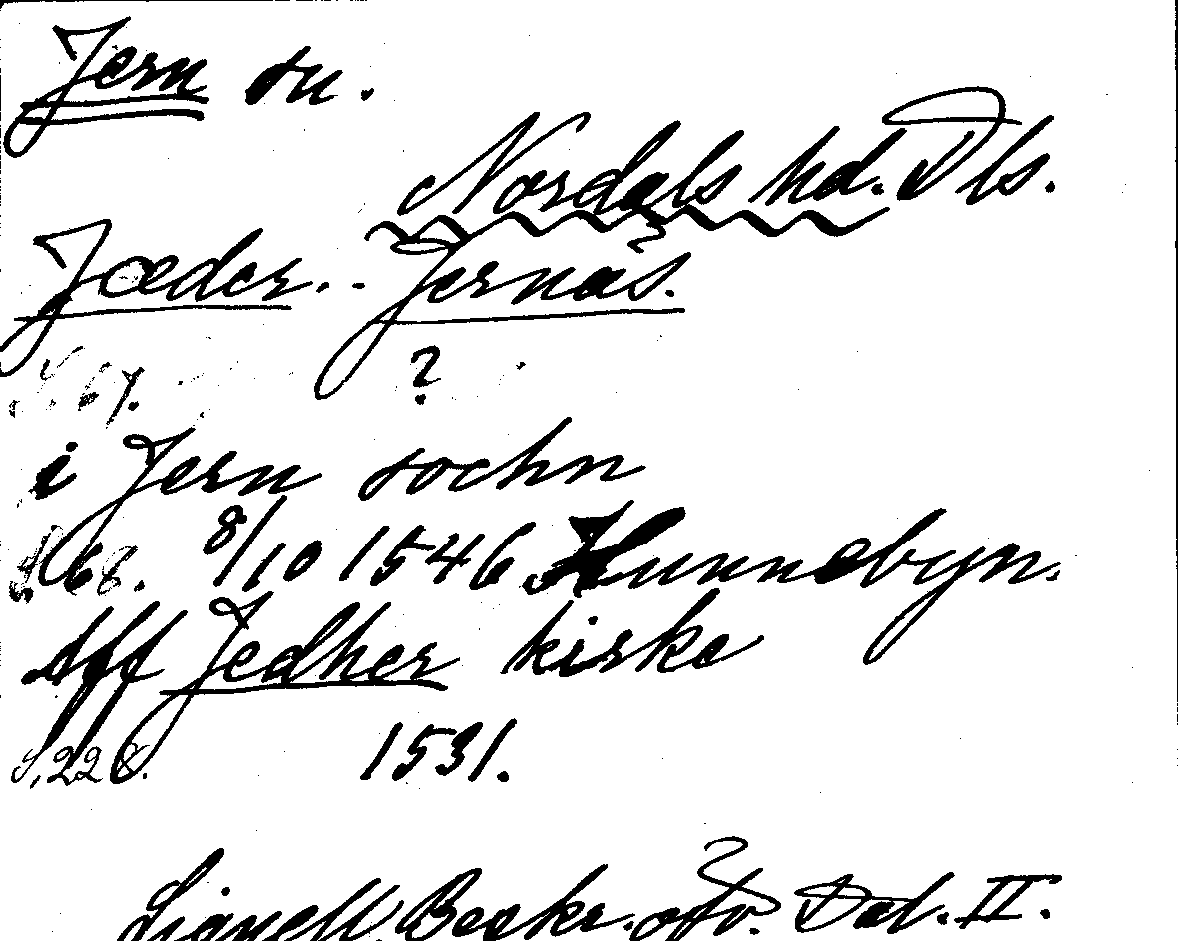 Jern sn.
Nordals hd. Dls.
Jæder. - Jernås.
S. 67. ?
i Jern sochn
S. 68. 8/10 1546 Hunnebyn.
Aff Jedher kirke
S. 228. 1531.
Lignell, Beskr. öfv. Dal. II.